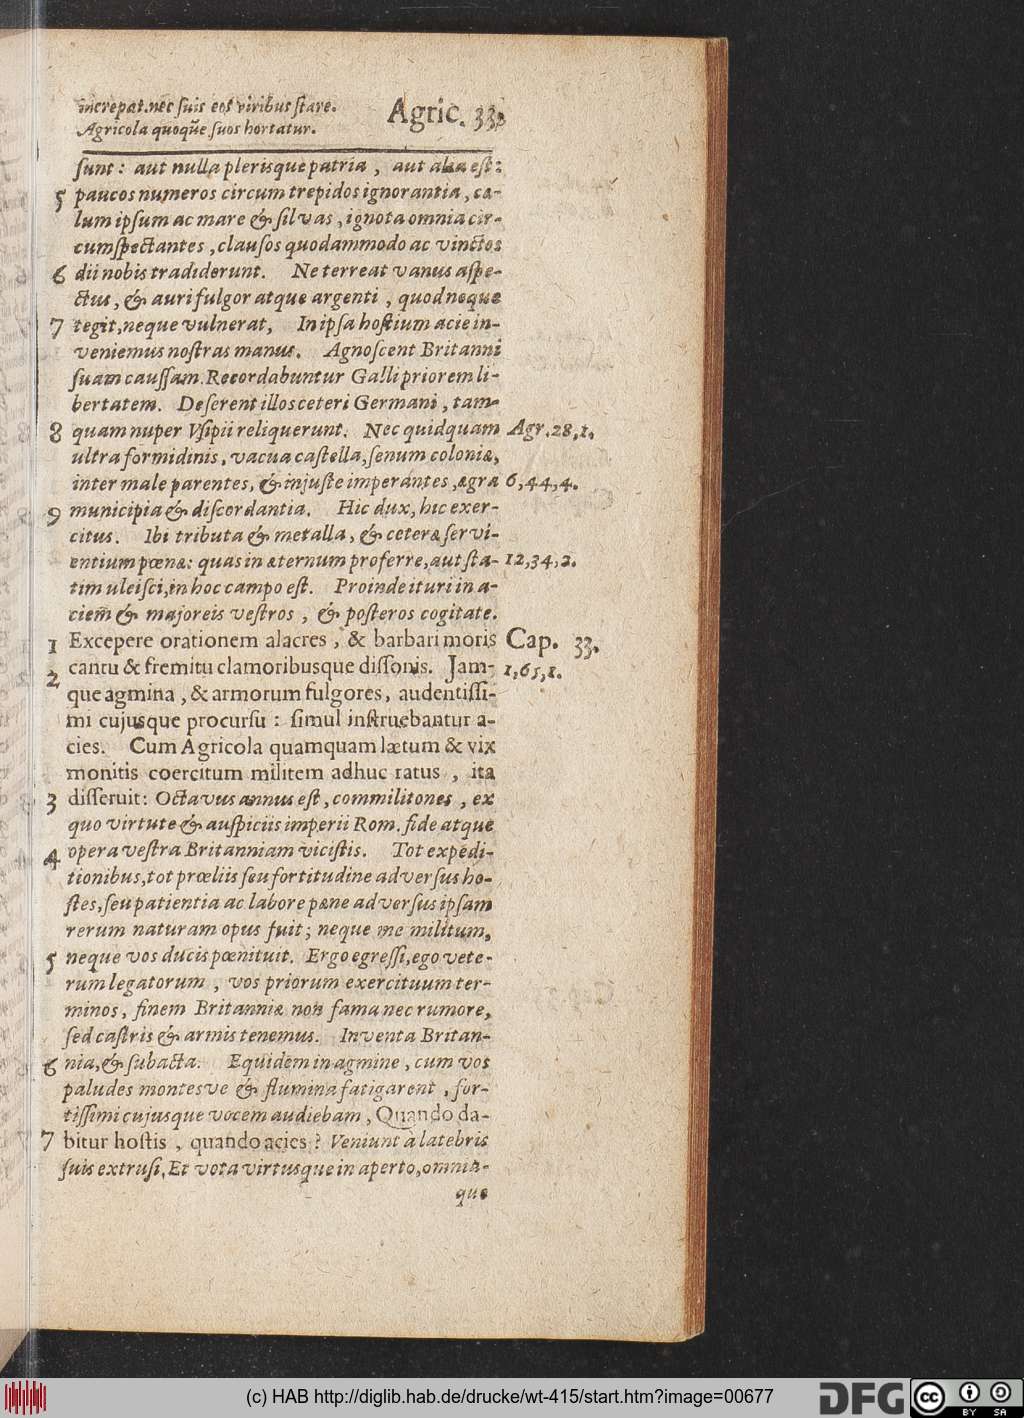 increpat. nec suis eos viribus stare.
Agricola quoq̃ue suos hortatur.
Agric. 33.
sunt: aut nulla plerisque patria, aut alia est:
5 paucos numeros circum trepidos ignorantia, cæ-
lum ipsum ac mare & silvas, ignota omnia cir-
cumspectantes, clausos quodammodo ac vinctos
6 dii nobis tradiderunt. Ne terreat vanus aspe-
ctus, & auri fulgor atque argenti, quod neque
7 tegit, neque vulnerat, In ipsa hostium acie in-
veniemus nostras manus. Agnoscent Britanni
suam caussam. Recordabuntur Galli priorem li-
bertatem. Deserent illos ceteri Germani, tam-
8 quam nuper Vsipii reliquerunt. Nec quidquam Agr. 28, 1.
ultra formidinis, vacua castella, senum coloniæ,
inter male parentes, & injuste imperantes, ægra 6, 44, 4.
9 municipia & discordantia. Hic dux, hic exer-
citus. Ibi tributa & metalla, & ceteræ servi-
entium pœnæ: quas in æternum proferre, aut sta- 12, 34, 2.
tim ulcisci, in hoc campo est. Proinde ituri in a-
ciem̃ & majoreis vestros, & posteros cogitate.
1 Excepere orationem alacres, & barbari moris Cap. 33.
2 cantu & fremitu clamoribusque dissonis. Jam- 1, 65, 1.
que agmina, & armorum fulgores, audentissi-
mi cujusque procursu: simul instruebantur a-
cies. Cum Agricola quamquam lætum & vix
monitis coercitum militem adhuc ratus, ita
3 disseruit: Octavus annus est, commilitones, ex
quo virtute & auspiciis imperii Rom. fide atque
4 opera vestra Britanniam vicistis. Tot expedi-
tionibus, tot prœliis seu fortitudine adversus ho-
stes, seu patientia ac labore pæne adversus ipsam
rerum naturam opus fuit; neque me militum,
5 neque vos ducis pœnituit. Ergo egressi, ego vete-
rum legatorum, vos priorum exercituum ter-
minos, finem Britanniæ non fama nec rumore,
sed castris & armis tenemus. Inventa Britan-
6 nia, & subacta. Equidem in agmine, cum vos
paludes montesve & flumina fatigarent, for-
tissimi cujusque vocem audiebam, Quando da-
7 bitur hostis, quando acies? Veniunt à latebris
suis extrusi, Et vota virtusque in aperto, omnia-
que
(c) HAB http://diglib.hab.de/drucke/wt-415/start.htm?image=00677
DFG
cc BY SA